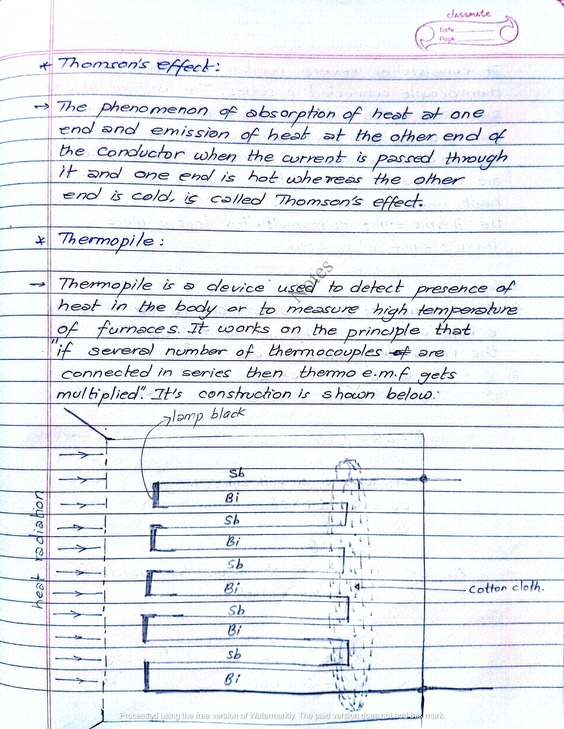 classmate
Date
Page
* Thomson's effect:
→ The phenomenon of absorption of heat at one
end and emission of heat at the other end of
the conductor when the current is passed through
it and one end is hot whereas the other
end is cold, is called Thomson's effect.
* Thermopile:
→ Thermopile is a device used to detect presence of
heat in the body or to measure high temperature
of furnaces. It works on the principle that
"if several number of thermocouples of are
connected in series then thermo e.m.f gets
multiplied". It's construction is shown below:
Notes
lamp black
Sb
Bi
Sb
Bi
Sb
Bi
Sb
Bi
Sb
Bi
heat radiation
Cotton cloth.
Processed using the free version of Watermarkly. The paid version does not add this mark.